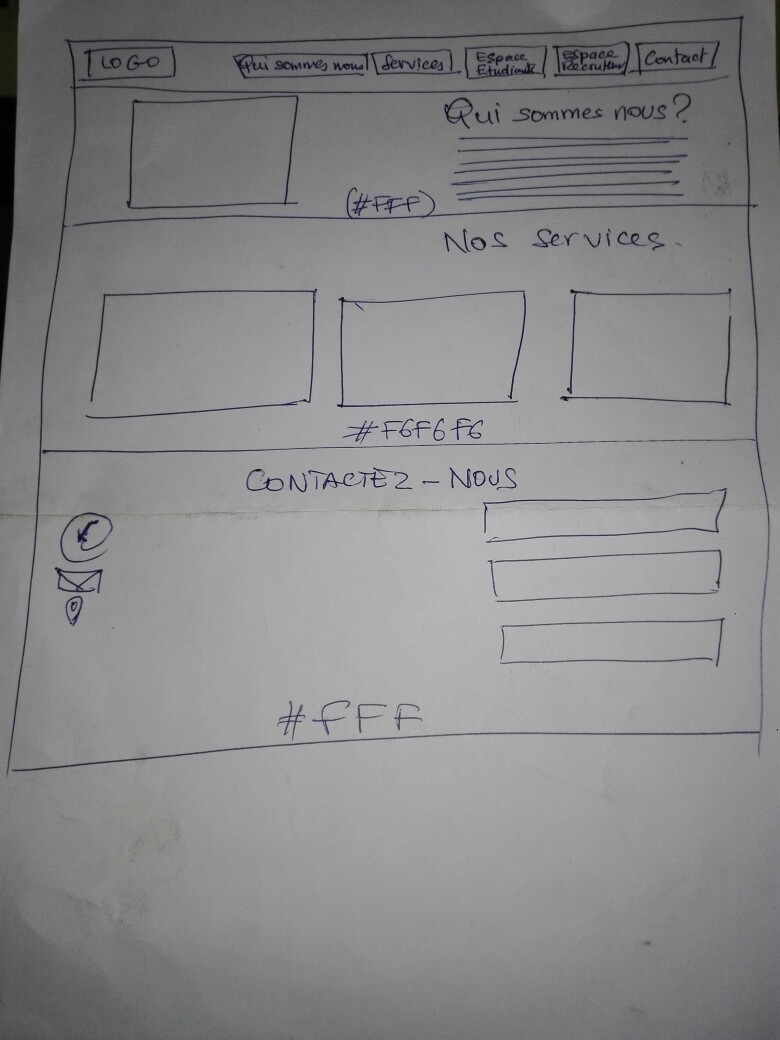 LOGO
Qui sommes nous
Services
Espace
Etudiants
Espace
Recruteur
Contact
Qui sommes nous?
(#FFF)
Nos services.
#F6F6F6
CONTACTEZ-NOUS
#fFF